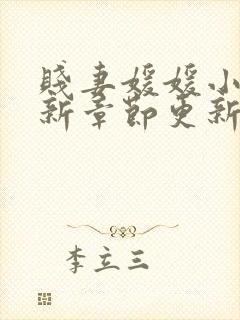 賤妻媛媛小
新章節更新
李立三